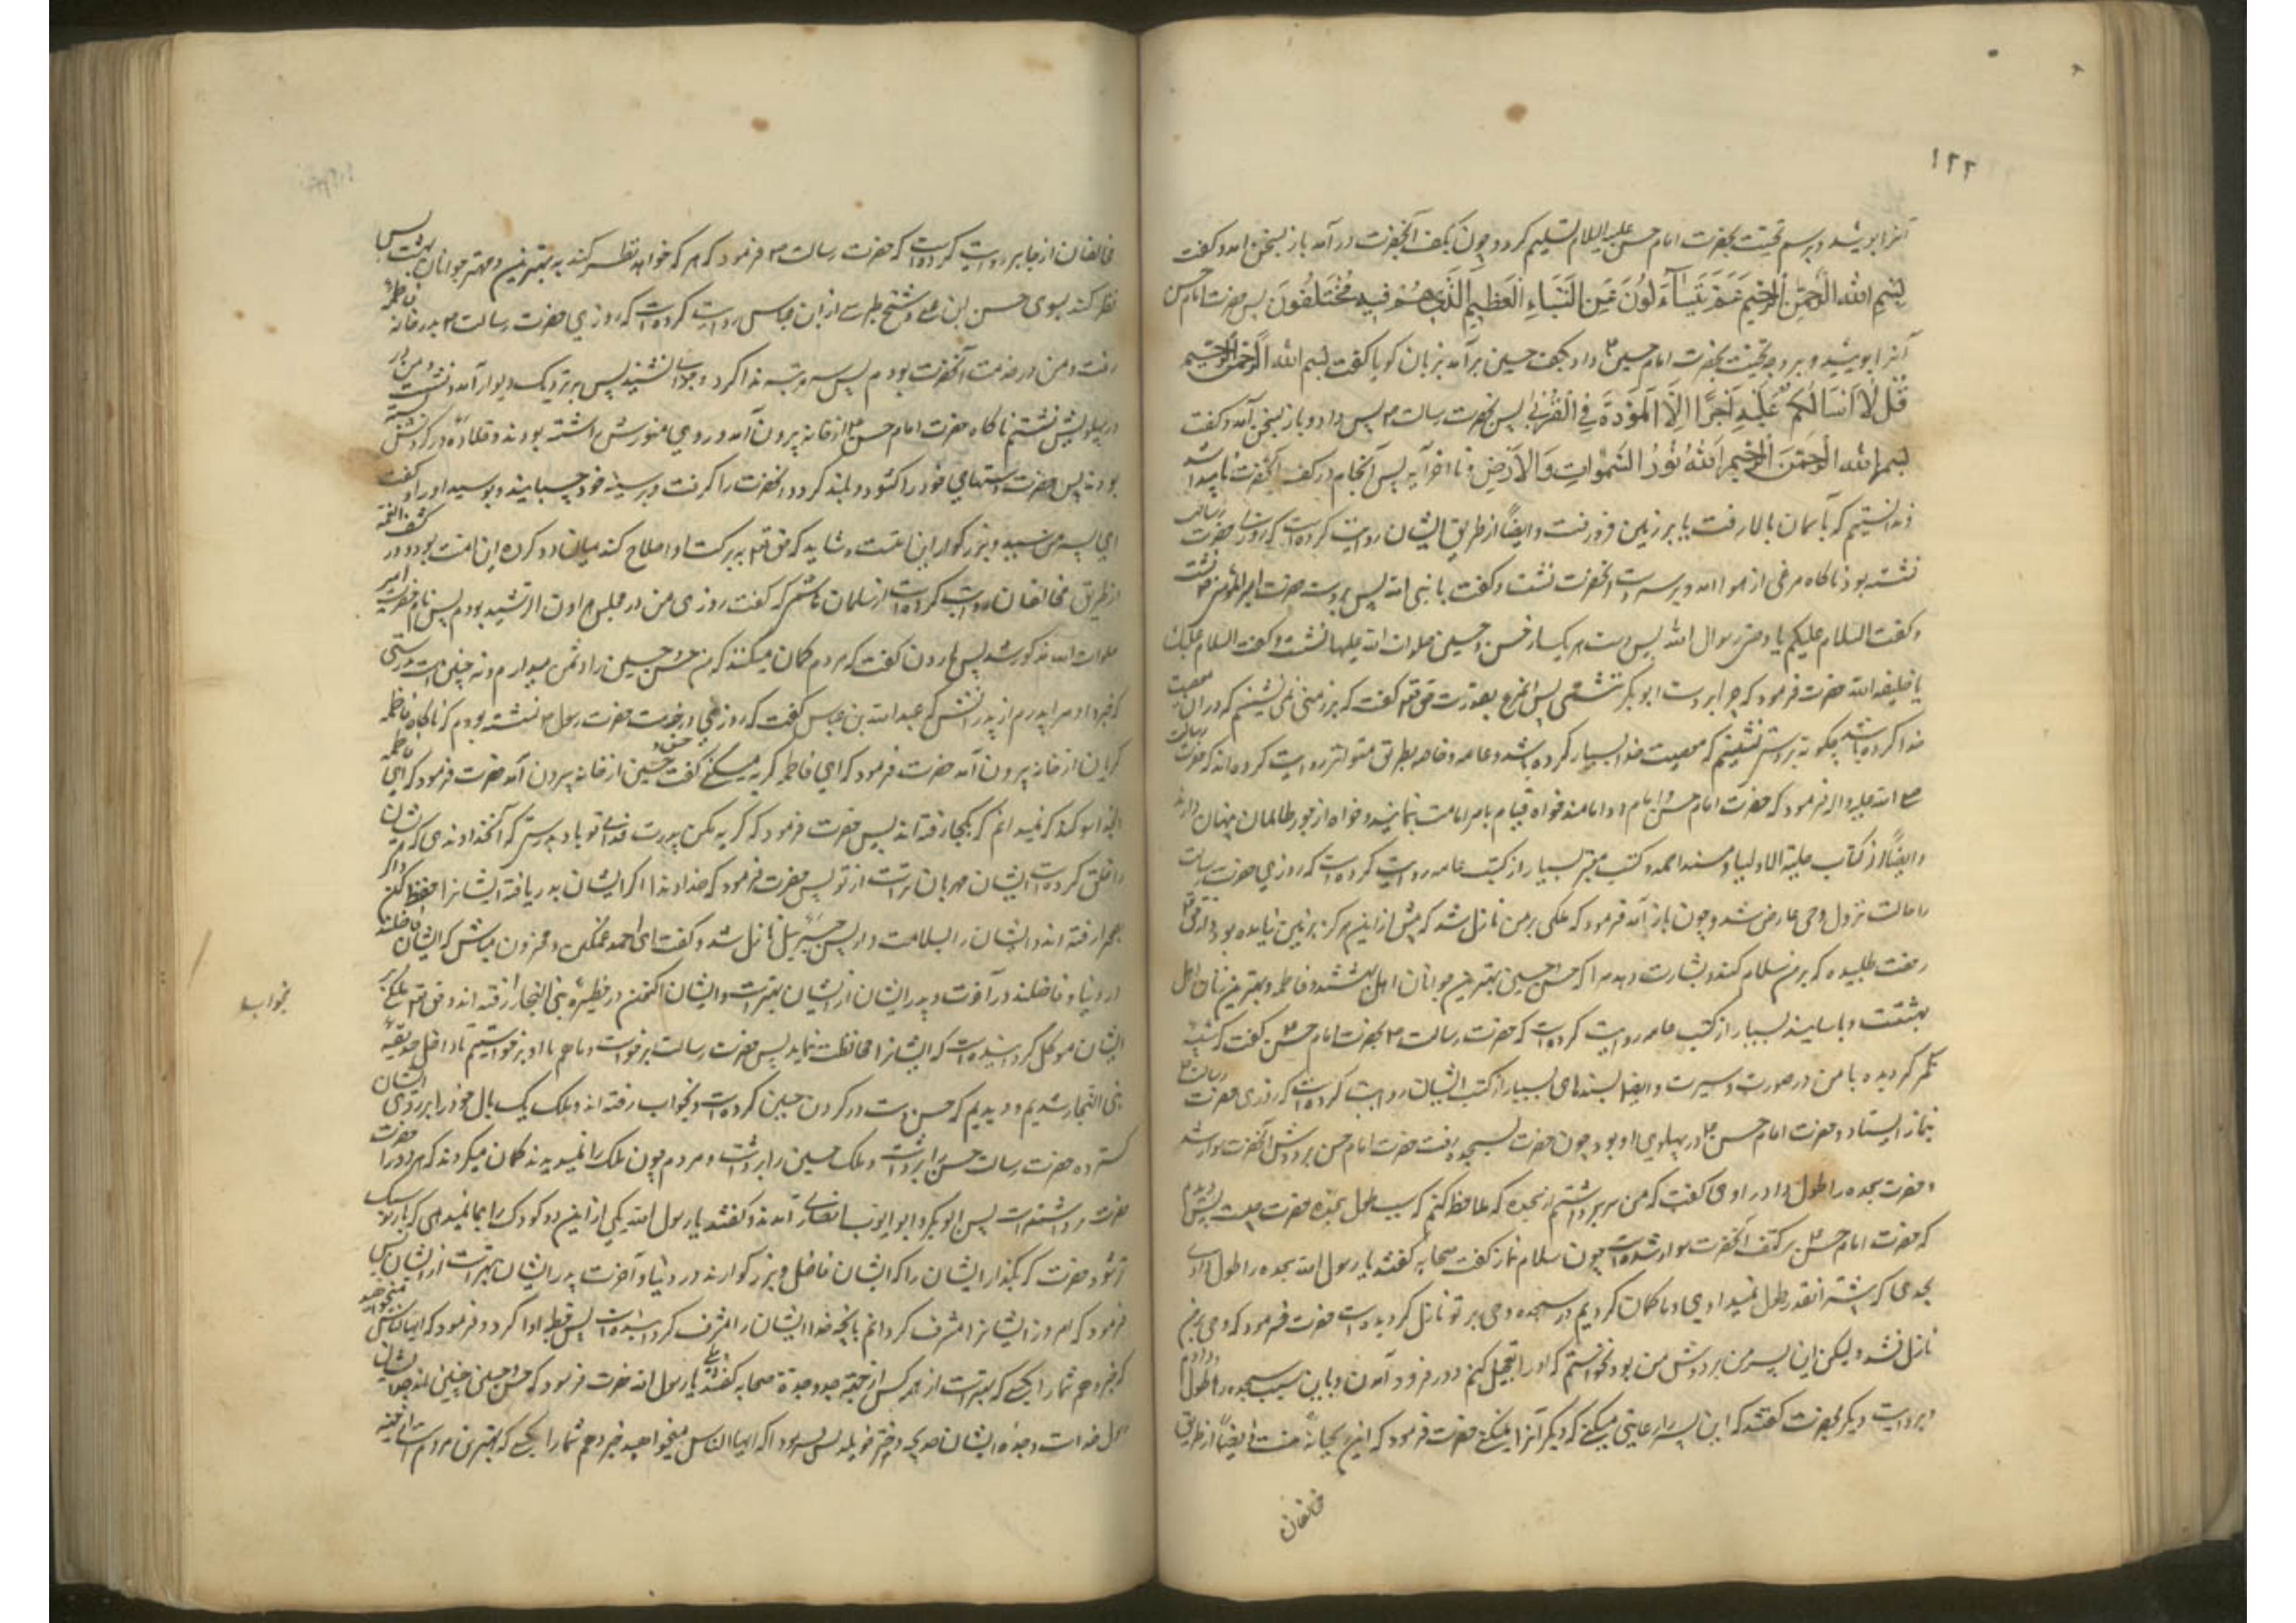 ۱۲۲
آنرا ببوئید و برسم تحیت بحضرت امام حسن علیه السلام تسلیم کرد و چون بکف آنحضرت در آمد باز بسخن آمد و گفت
بِسْمِ اللهِ الرَّحْمٰنِ الرَّحِیمِ عَمَّ یَتَسَآءَلُونَ عَنِ النَّبَاءِ الْعَظِیمِ الَّذِی هُمْ فِیهِ مُخْتَلِفُونَ پس حضرت امام حسن
آنرا ببوئید و بر وجه تحیت بحضرت امام حسین ع داد بکف حسین بر آمد بزبان گویا گفت بسم الله الرحمن الرحیم
قُلْ لَا أَسْأَلُکُمْ عَلَیْهِ أَجْرًا إِلَّا الْمَوَدَّةَ فِی الْقُرْبٰی پس بحضرت رسالت ص پس داد و باز بسخن آمد و گفت
بسم الله الرحمن الرحیم اَللهُ نُورُ السَّمٰوَاتِ وَالْأَرْضِ تا آخر آیه پس آنجام در کف آنحضرت ناپیدا شد
و ندانستیم که بآسمان بالا رفت یا بر زمین فرو رفت و ایضاً از طریق ایشان روایت کرده است که روزی حضرت رسالت
نشسته بود ناگاه مرغی از هوا آمد و بر سر دست آنحضرت نشست و گفت یا نبی الله پس بر دست حضرت امیر المؤمنین نشست
و گفت السلام علیکم یا وصی رسول الله پس دست هر یک از حسن و حسین صلوات الله علیهما نشست و گفت السلام علیک
یا خلیفه الله حضرت فرمود که چرا بر دست ابو بکر ننشستی پس آنمرغ بقدرت حق تعه گفت که بر زمینی نمی نشینم که در آن معصیت
خدا کرده باشند چگونه بر دستی نشینم که معصیت خدا بسیار کرده باشد و عامه و خاصه بطریق متواتر روایت کرده اند که حضرت رسالت
صلی الله علیه و اله فرمود که حضرت امام حسن و امام دو امامند خواه قیام بامر امامت بنمایند و خواه از جور ظالمان پنهان دارند
و ایضاً از کتاب حلیة الاولیا و مسند احمد و کتب معتبر بسیار از کتب عامه روایت کرده است که روزی حضرت رسالت
را حالت نزول وحی عارض شد و چون باز آمد فرمود که ملکی بر من نازل شد که پیش از این هرگز بزمین نیامده بود و از حق تعه
رخصت طلبیده که بر من سلام کند و بشارت دهد مرا که حسن و حسین بهترین جوانان اهل بهشتند و فاطمه و بهترین زنان اهل
بهشتست و باسانید بسیار از کتب عامه روایت کرده است که حضرت رسالت ص بحضرت امام حسن ع گفت که شبیه
گردیده با من در صورت و سیرت و ایضاً بسندهای بسیار از کتب ایشان روایت کرده است که روزی حضرت رسالت ص
بنماز ایستاد و حضرت امام حسن ع در پهلوی او بود چون حضرت بسجده رفت حضرت امام حسن بر دوش آنحضرت سوار شد
و حضرت سجده را طول داد راوی گفت که من سر برداشتم از سجده که ملاحظه کنم که سبب طول سجده حضرت چیست پس دیدم
که حضرت امام حسن ع بر کتف آنحضرت سوار شده است چون سلام نماز گفت صحابه گفتند یا رسول الله سجده را طول دادی
بحدی که پیشتر اینقدر طول نمیدادی و ما گمان کردیم در سجده وحی بر تو نازل گردیده است حضرت فرمود که وحی بر من
نازل نشد ولیکن این پسر من بر دوش من بود نخواستم که او را تعجیل کنم در فرود آمدن و باین سبب سجده را طول دادم
و بروایت دیگر بحضرت گفتند که این پسر را رعایتی میکنی که دیگر آنرا نمیکنی حضرت فرمود که این ریحانه منست و ایضاً از طریق
مخالفان
مخالفان از جابر روایت کرده است که حضرت رسالت ص فرمود که هر که خواهد نظر کند به بهترین و مهتر جوانان بهشت پس
نظر کند بسوی حسن بن علی و شیخ طبرسی از ابن عباس روایت کرده است که روزی حضرت رسالت ص بدر خانه فاطمه
رفت و من در خدمت آنحضرت بودم پس سه مرتبه ندا کرد و جوابی نشنید پس بر نزدیک دیوار آمد و نشست و من در
در پهلویش نشستم ناگاه حضرت امام حسن ع از خانه بیرون آمد و روی منورش را شسته بودند و قلاده در گردنش بسته
بودند پس حضرت دستهای خود را گشود و بلند کرد و آنحضرت را گرفت و بر سینه خود چسبانید و بوسید او را و گفت
این پسر من سید و بزرگوار این امت و شاید که حق تعه به برکت او اصلاح کند میان دو گروه این امت بود و در کشف الغمه
از طریق مخالفان روایت کرده است از سلمان هاشم که گفت روزی من در مجلس هارون الرشید بودم پس نام حضرت امیر
صلوات الله مذکور شد پس هارون گفت که مردم گمان میکنند که من حسن و حسین را دشمن میدارم و نه چنین است بدرستی
که خبر داد مرا پدرم از پدرانش که عبد الله بن عباس گفت که روزی در خدمت حضرت رسول ص نشسته بودم که ناگاه فاطمه
گریان از خانه بیرون آمد حضرت فرمود که ای فاطمه گریه میکنی گفت حسن و حسین از خانه بیرون آمد حضرت فرمود که ای فاطمه
بخدا سوگند که نمیدانم که بکجا رفته اند پس حضرت فرمود که گریه مکن پدرت فدای تو باد بدرستی که آنخداوندی که ایشان
را خلق کرده است بایشان مهربان تر است از تو پس حضرت فرمود که خداوندا اگر ایشان به دریا فته ایشانرا حفظ کن و اگر
بصحرا رفته اند و ایشان را بسلامت دار پس جبرئیل نازل شد و گفت ای احمد غمگین و محزون مباش که ایشان فاضلند
در دنیا و فاضلند در آخرت و پدر ایشان از ایشان بهتر است و ایشان اکنون در حظیره بنی النجار رفته اند و حق تعه ملکی بر
ایشان موکل گردانیده است که ایشانرا محافظت نماید پس حضرت رسالت برخواست و ما هم با او برخواستیم تا داخل حدیقه
بنی النجار شدیم و دیدیم که حسن دست در گردن حسین کرده است و بخواب رفته اند و ملک یک بال خود را بر روی ایشان
گسترده حضرت رسالت حسن را برداشت و ملک حسین را برداشت و مردم چون ملک را نمیدیدند گمان میکردند که هر دو را حضرت
برداشته است پس ابو بکر و ابو ایوب انصاری آمدند و گفتند یا رسول الله یکی از این دو کودک را بما نمیدهی که بار تو سبک
تر شود حضرت که بگذار ایشان را که ایشان فاضل و بزرگوارند در دنیا و آخرت پدر ایشان بهتر است از ایشان پس
فرمود که امروز ایشانرا مشرف گردانم بآنچه خدا ایشان را مشرف گردانیده است پس خطبه ادا کرد و فرمود که ایها الناس میخواهید
که خبر دهم شما را بکسی که بهتر است از همه کس از جهة جد و جده صحابه گفتند بلی یا رسول الله حضرت فرمود که حسن و حسین چنین اند جد ایشان
رسول خداست و جده ایشان خدیجه دختر خویلد پس فرمود که ایها الناس میخواهید خبر دهم شما را بکسی که بهترین مردم است از جهة
بخوابید